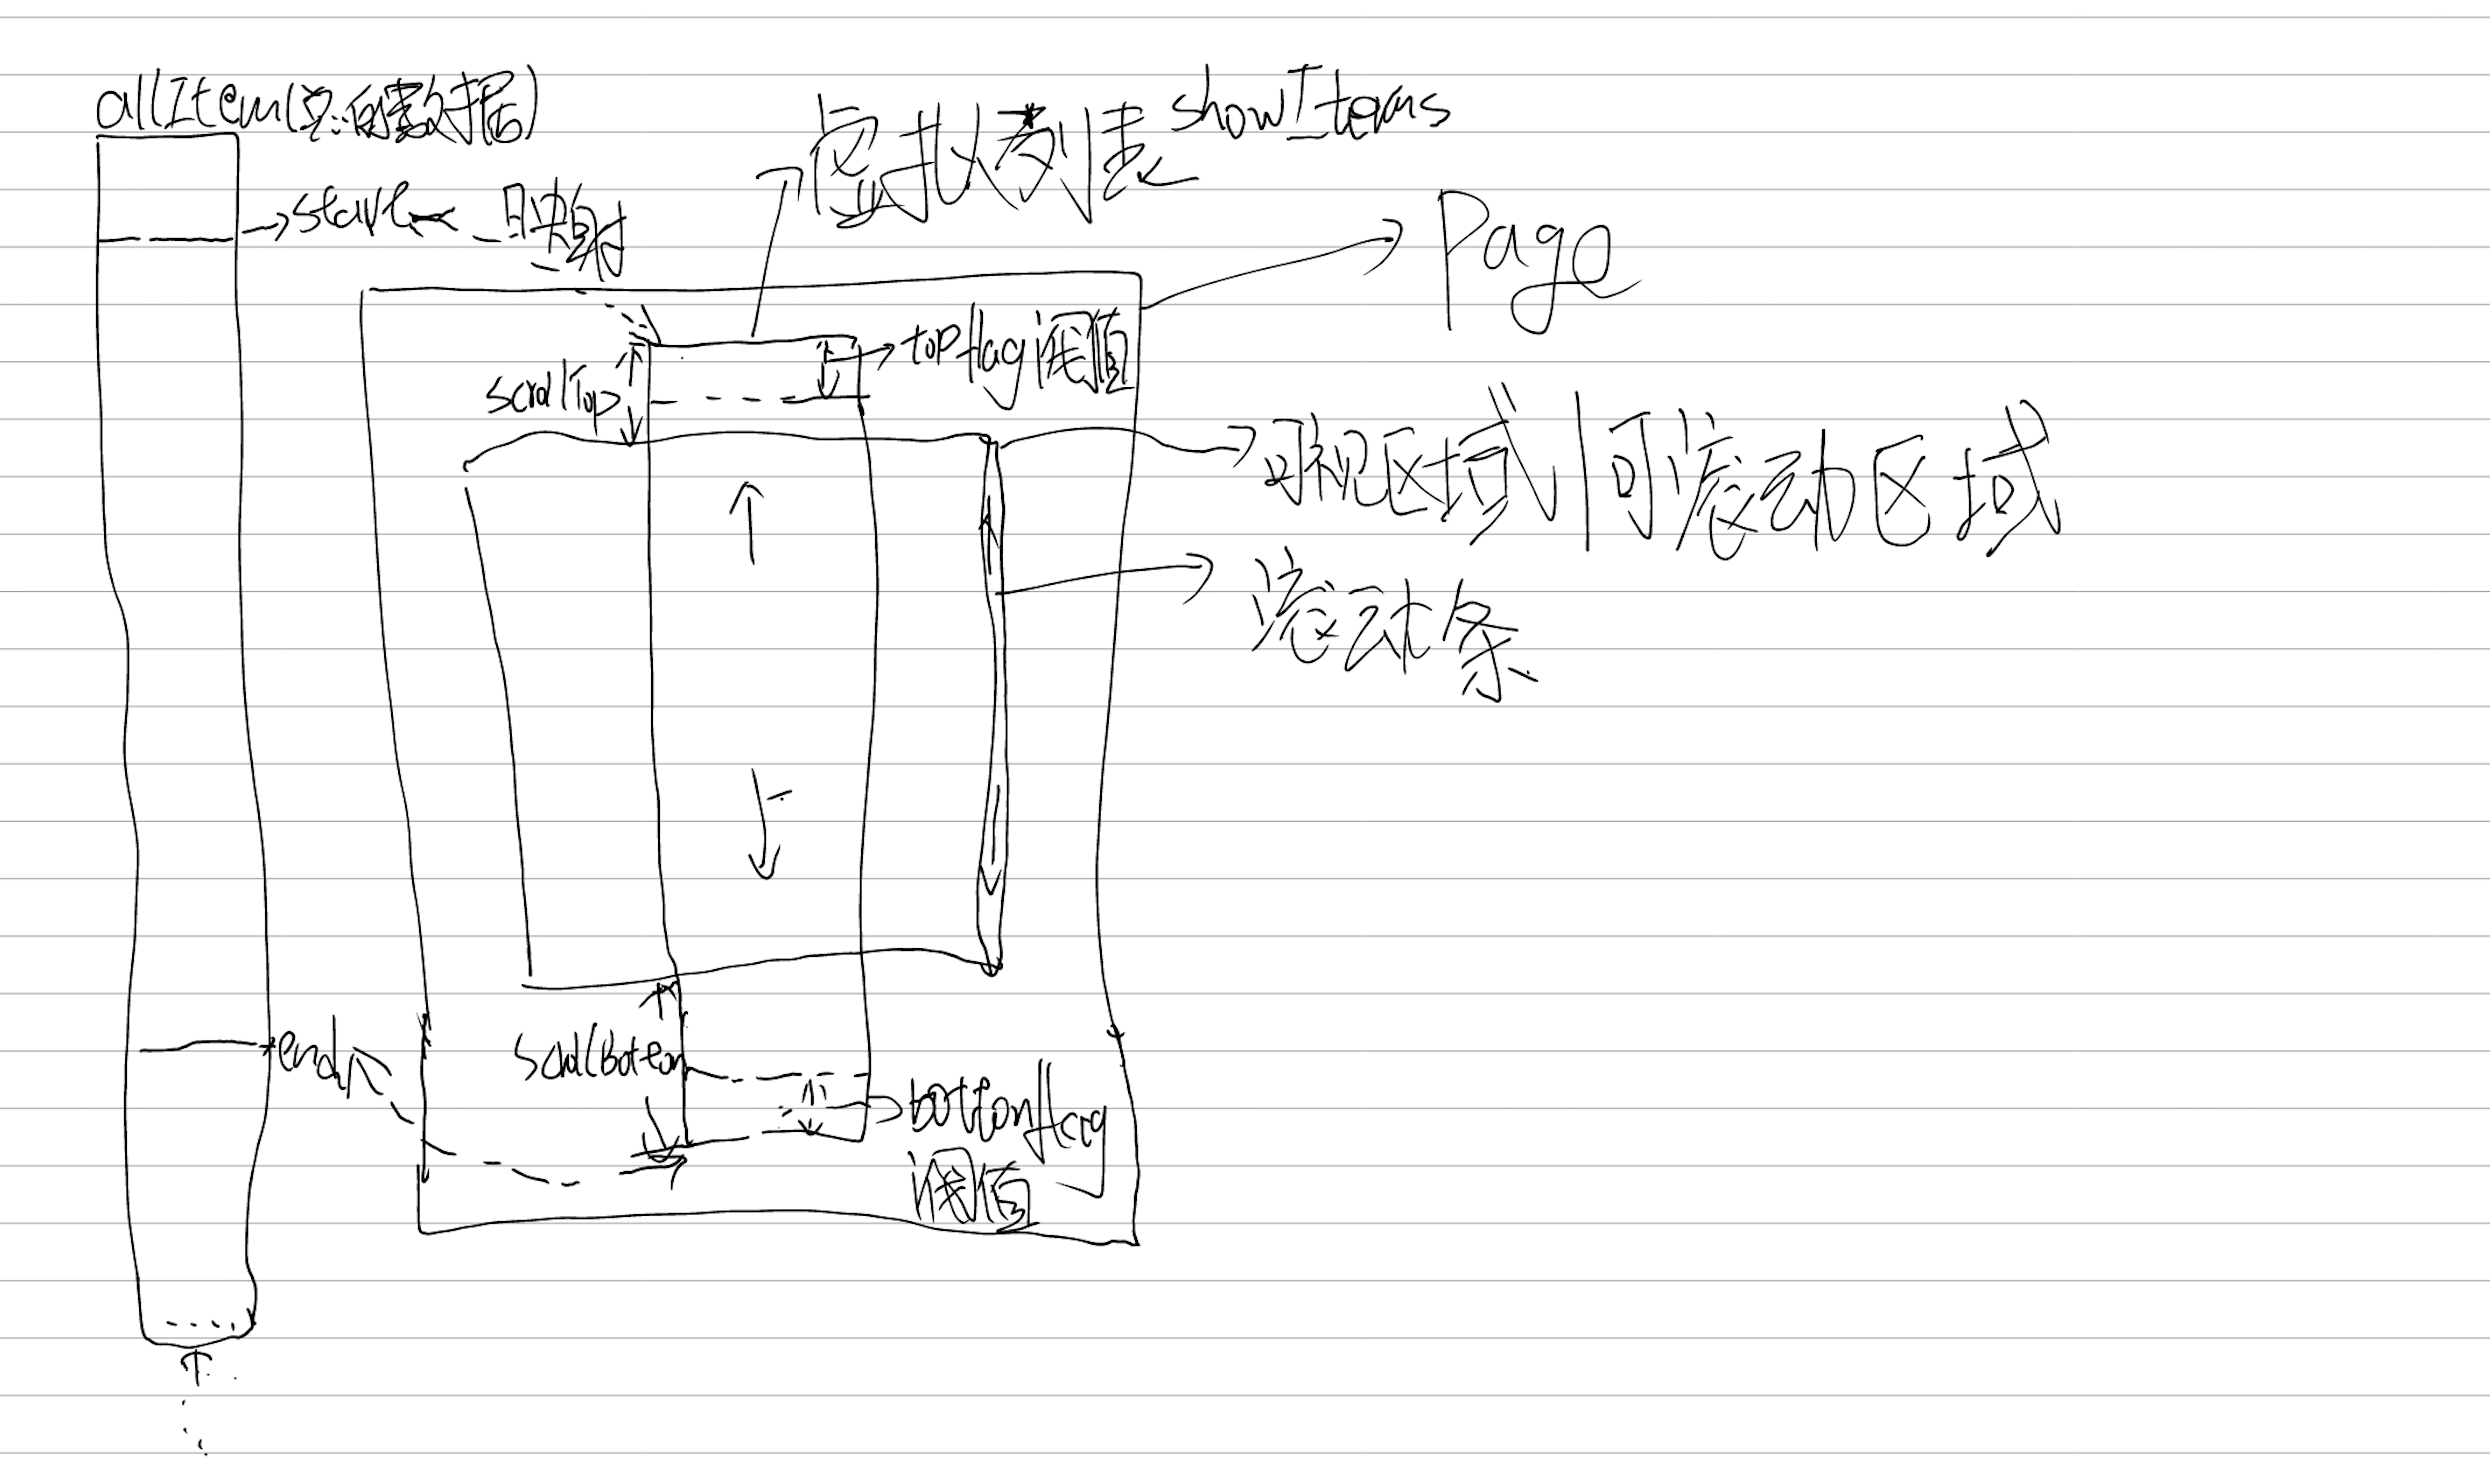 allItem(总的数据)
虚拟列表 showItems
start 映射
Page
topflag阈值
scrollTop
可视区域/可滚动区域
滚动条
end
scrollBottom
bottomflag
阈值